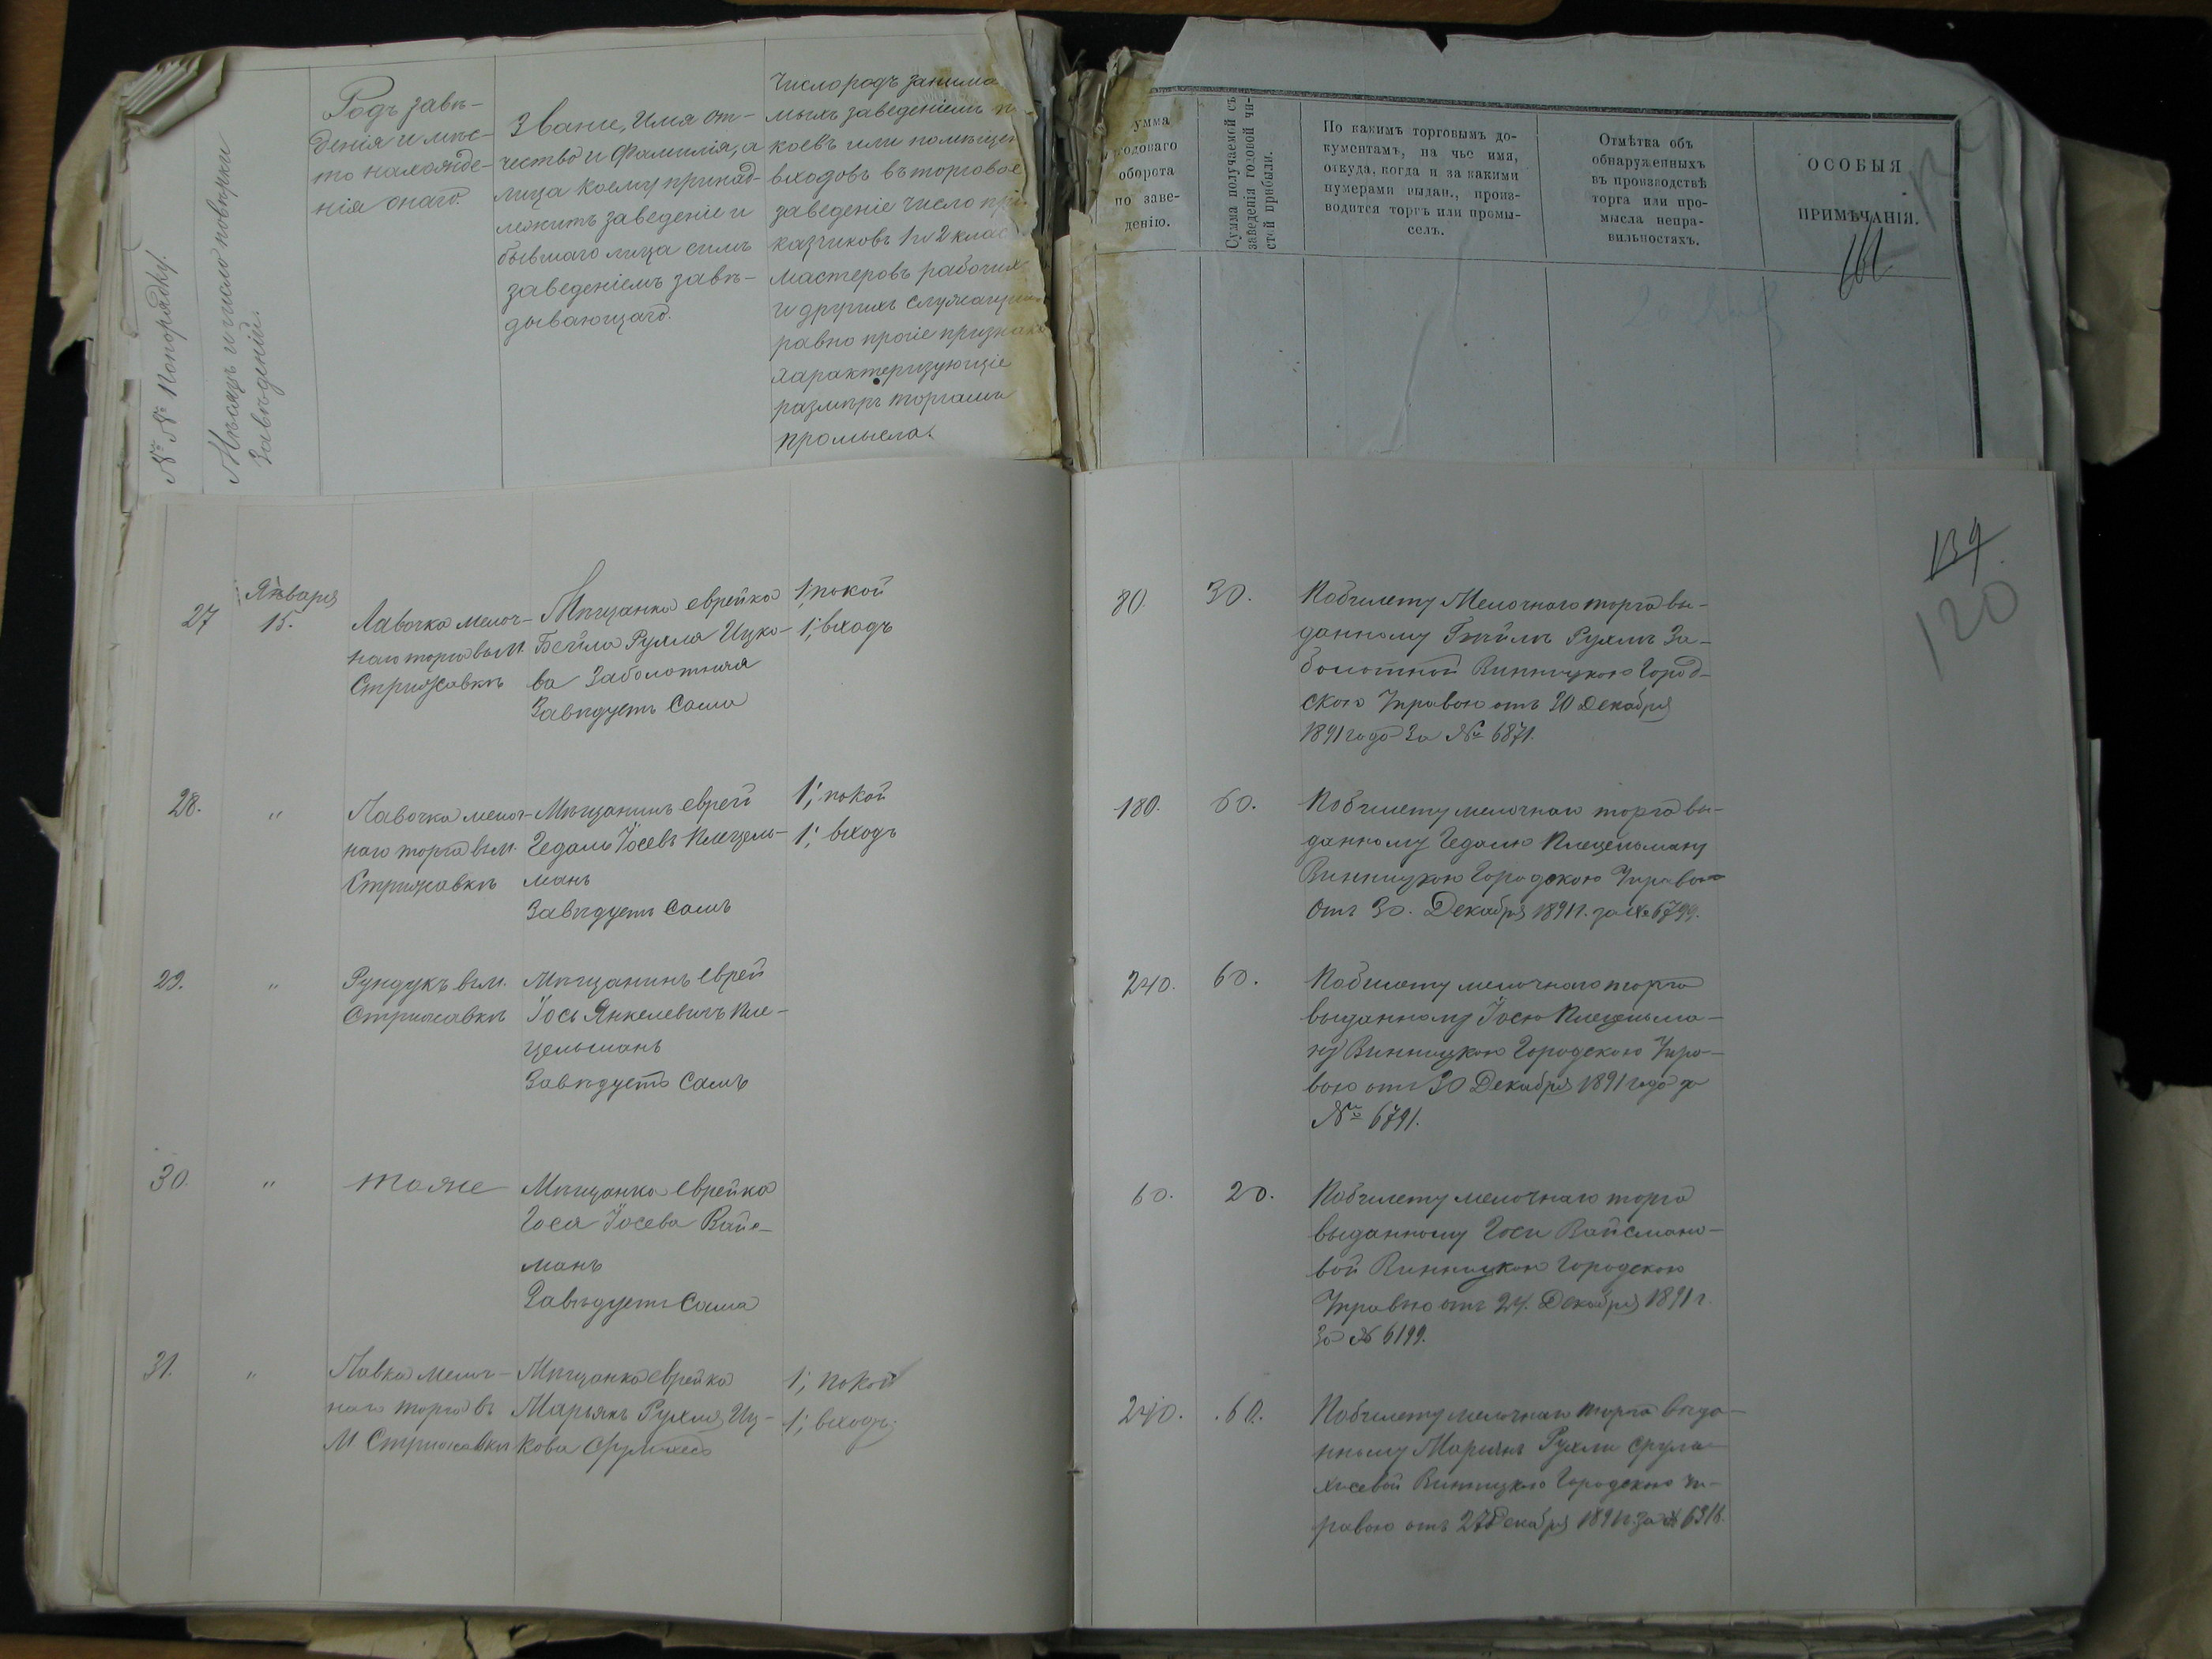 №№ попорядку.
Мѣсяцъ и число повѣрки
Завѣденій.
Родъ завѣ-
денія и мѣс-
то нахожде-
нія онаго.
Званіе, Имя от-
чество и Фамилія, а
лица коему принад-
лежитъ заведеніе и
бывшаго лица симъ
заведеніемъ завѣ-
дывающаго.
Число родъ занима
мыхъ заведеніемъ п
коевъ или помѣщен
входовъ въ торговое
заведеніе число при
казчиковъ 1 и 2 клас
мастеровъ рабочихъ
и другихъ служащихъ
равно прочіе признаки
характеризующіе
размѣръ торга или
промысла.
умма
годоваго
оборота
по заве-
денію.
Сумма получаемой съ
заведенія годовой чи-
стой прибыли.
По какимъ торговымъ до-
кументамъ, на чье имя,
откуда, когда и за какими
нумерами выдан., произ-
водится торгъ или промы-
селъ.
Отмѣтка объ
обнаруженныхъ
въ производствѣ
торга или про-
мысла непра-
вильностяхъ.
ОСОБЫЯ
ПРИМѢЧАНІЯ.
139
120
27
Января
15.
Лавочка мелоч-
наго торга въ м.
Стрижавкѣ
Мѣщанка еврейка
Бейла Рухля Ицко-
ва Заболотная
Завѣдуетъ Сама
1; покой
1; входъ
80.
30.
По билету Мелочнаго торга вы-
данному Бейлѣ Рухлѣ За-
болотной Винницкою Город-
скою Управою отъ 30 Декабря
1891 года За № 6871.
28.
"
Лавочка мелоч-
наго торга въ м.
Стрижавкѣ
Мѣщанинъ еврей
Гедаль Іосевъ Плецель-
манъ
Завѣдуетъ Самъ
1; покой
1; входъ
180.
60.
По билету мелочнаго торга вы-
данному Гедалю Плецельману
Винницкою Городскою Управою
отъ 30. Декабря 1891 г. за № 6799.
29.
"
Рундукъ въ м.
Стрижавкѣ
Мѣщанинъ Еврей
Іось Янкелевичъ Пле-
цельманъ
Завѣдуетъ Самъ
240.
60.
По билету мелочнаго торга
выданному Іосю Плецельма-
ну Винницкою Городскою Упра-
вою отъ 30 Декабря 1891 года за
№ 6791.
30
"
тоже
Мѣщанка Еврейка
Гося Іосева Вайс-
манъ
Завѣдуетъ Сама
60.
20.
По билету мелочнаго торга
выданному Госи Вайсмано-
вой Винницкою Городскою
Управою отъ 24. Декабря 1891 г.
За № 6199.
31.
"
Лавка мелоч-
наго торга въ
М. Стрижавкѣ
Мѣщанка еврейка
Марьямъ Рухля Иц-
кова
1; покой
1; входъ;
240.
60.
По билету мелочнаго торга выда-
нному Марьямъ Рухли Срула-
хисевой Винницкою Городскою Уп-
равою отъ 27 Декабря 1891 г. за № 6316.